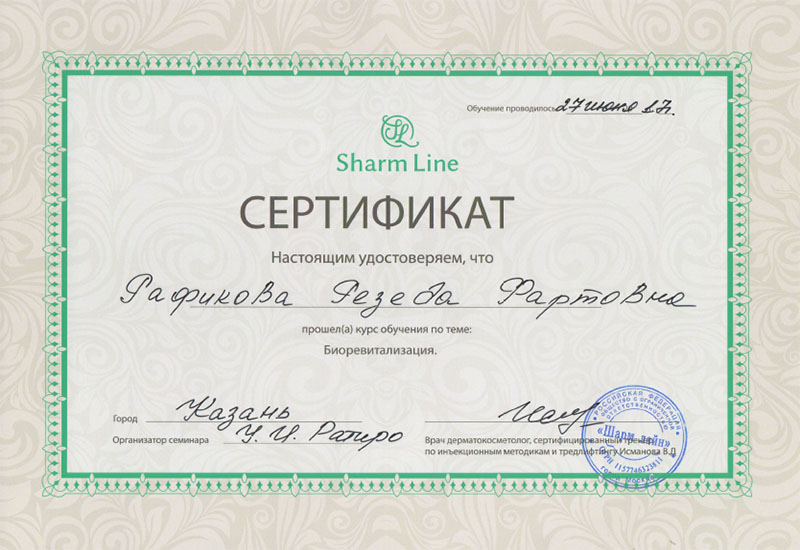 Обучение проводилось 27 июня 17г.
SL
Sharm Line
СЕРТИФИКАТ
Настоящим удостоверяем, что
Рафикова Резеда Фартовна
прошел(а) курс обучения по теме:
Биоревитализация.
Город Казань
Организатор семинара У.И. Рапиро
Врач дерматокосметолог, сертифицированный тренер
по инъекционным методикам и тредлифтингу Исманова В.Д.
РОССИЙСКАЯ ФЕДЕРАЦИЯ
ОБЩЕСТВО С ОГРАНИЧЕННОЙ
ОТВЕТСТВЕННОСТЬЮ
«Шарм лайн»
ОГРН 1157746323811
гор. Москва